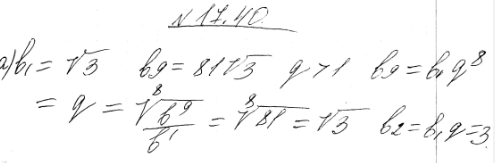 N 17.40.
а) b₁ = √3 b₉ = 81√3 q > 1 b₉ = b₁q⁸
= q = ⁸√(b⁹/b¹) = ⁸√81 = √3 b₂ = b₁q = 3